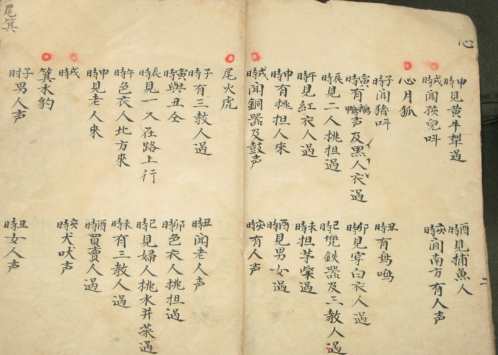 心
申時見黃牛犁過 酉時見捕魚人
戌時聞孩兒叫 亥時聞南方有人声
心月狐
子時聞猪叫 丑時有鳴
寅時有鴨声及黒人衣過 卯時見穿白衣人過
辰時見二人挑担過 巳時鉄器及三教人過
午時見紅衣人過 未時担茅柴過
申時有挑担人來 酉時見男女過
戌時聞銅器及鼓声 亥時有人声
尾箕
尾火虎
子時有三教人過 丑時聞老人声
寅時與丑仝 卯時色衣人挑担過
辰時見一人在路上行 巳時見婦人挑水并菜過
午時色衣人北方來 未時有三教人過
申時見老人來 酉時買賣人過
戌時 亥時犬吠声
箕水豹
子時男人声 丑時女人声